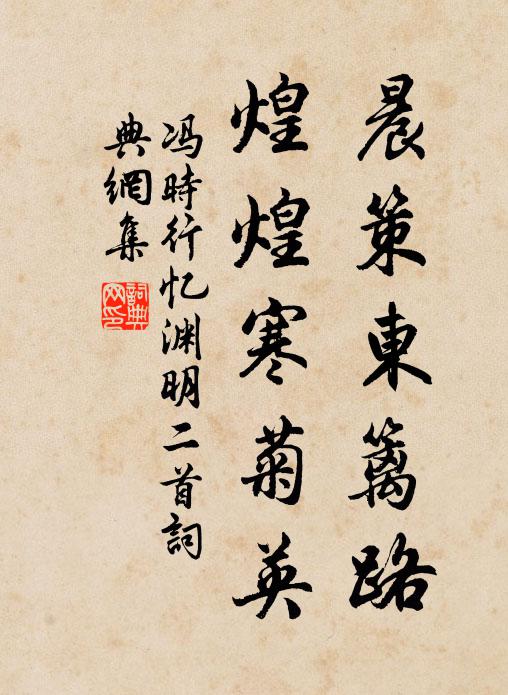 晨策東籬路
煌煌寒菊英
冯時行忆渊明二首詞
典網集
詞典
网印